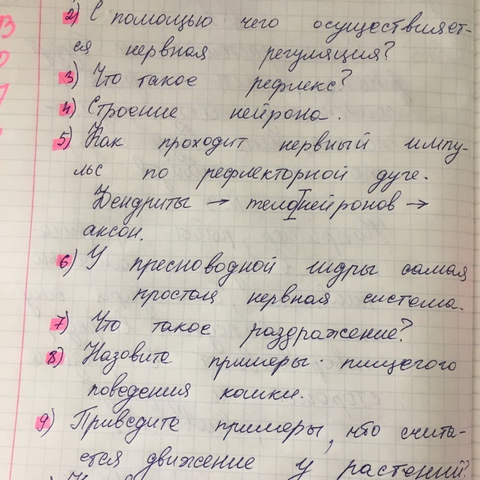 2) С помощью чего осуществляет-
ся нервная регуляция?
3) Что такое рефлекс?
4) Строение нейрона.
5) Как проходит нервный импу-
льс по рефлекторной дуге.
Дендриты → тело нейронов →
аксон.
6) У пресноводной гидры самая
простая нервная система.
7) Что такое раздражение?
8) Назовите примеры пищегого
поведения кошки.
9) Приведите примеры, что счита-
ется движение у растений?